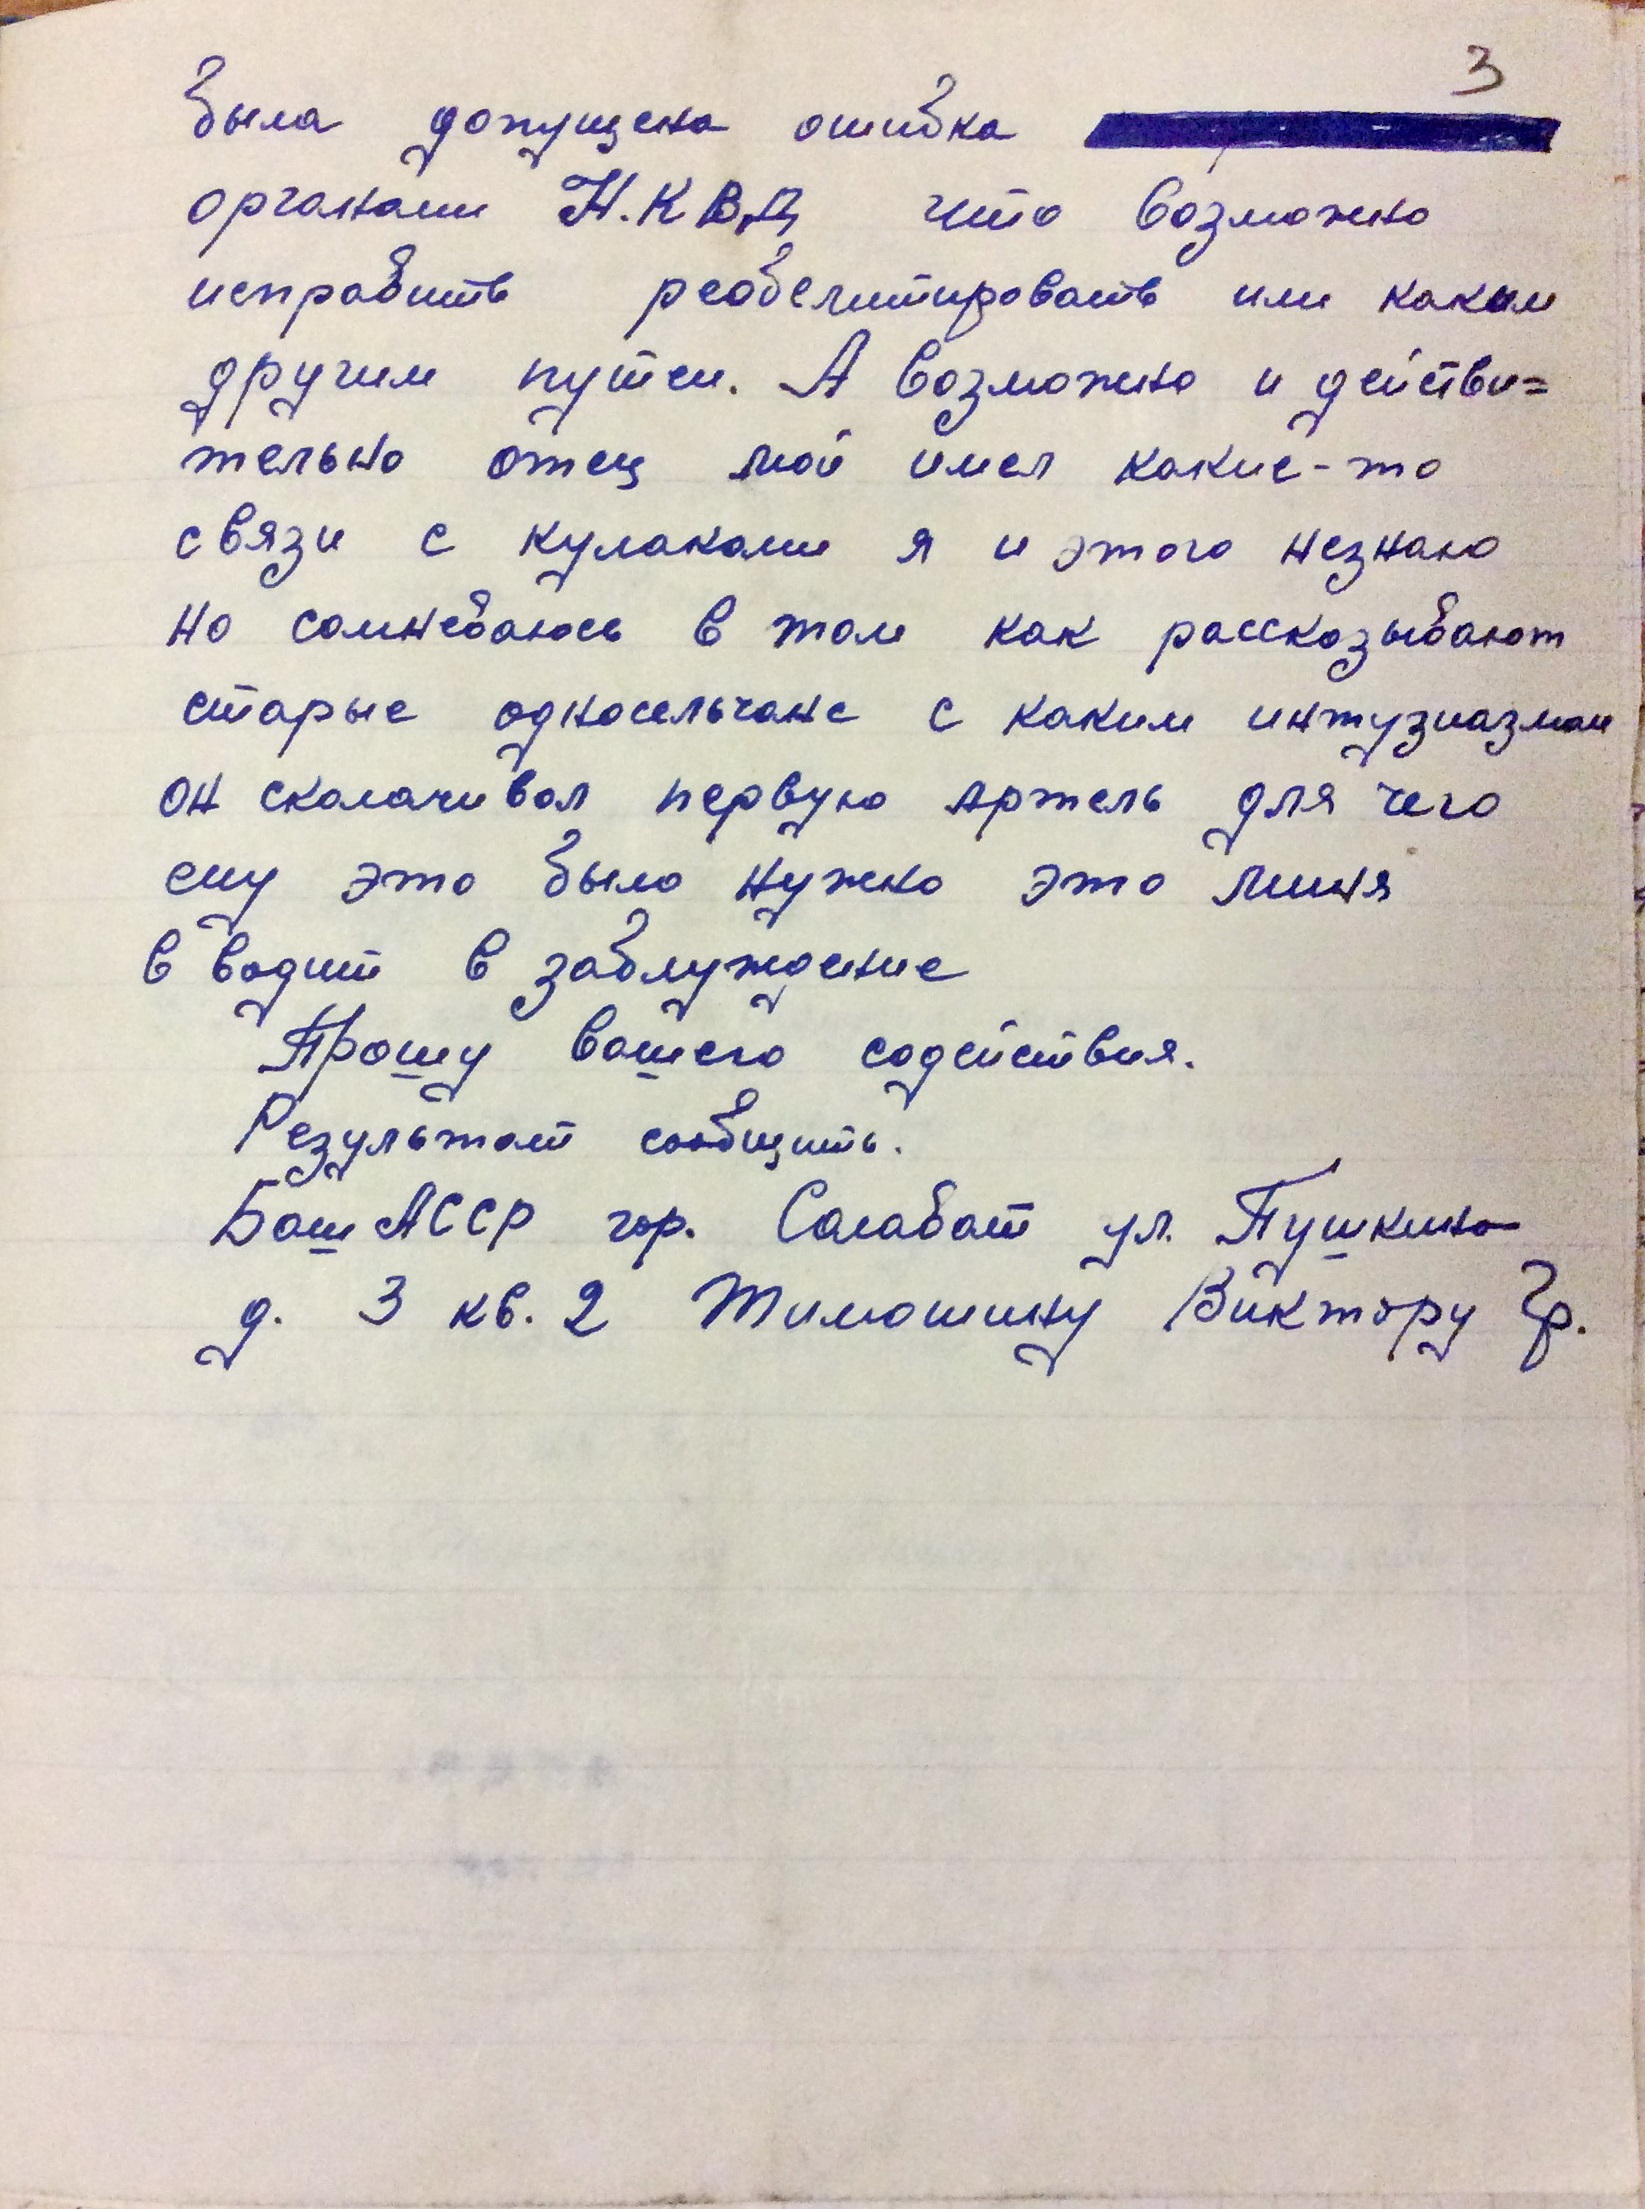 3
была допущена ошибка
органами Н.КВД что возможно
исправить реобелитировать или каким
другим путем. А возможно и действи=
тельно отец мой имел какие-то
связи с кулаками я и этого незнаю
но сомневаюсь в том как рассказывают
старые односельчане с каким интузиазмом
он сколачивал первую артель для чего
ему это было нужно это миня
в водит в заблуждение
Прошу вашего содействия.
Результат сообщить.
Баш АССР гор. Салават ул. Пушкина
д. 3 кв. 2 Тимошину Виктору Гр.